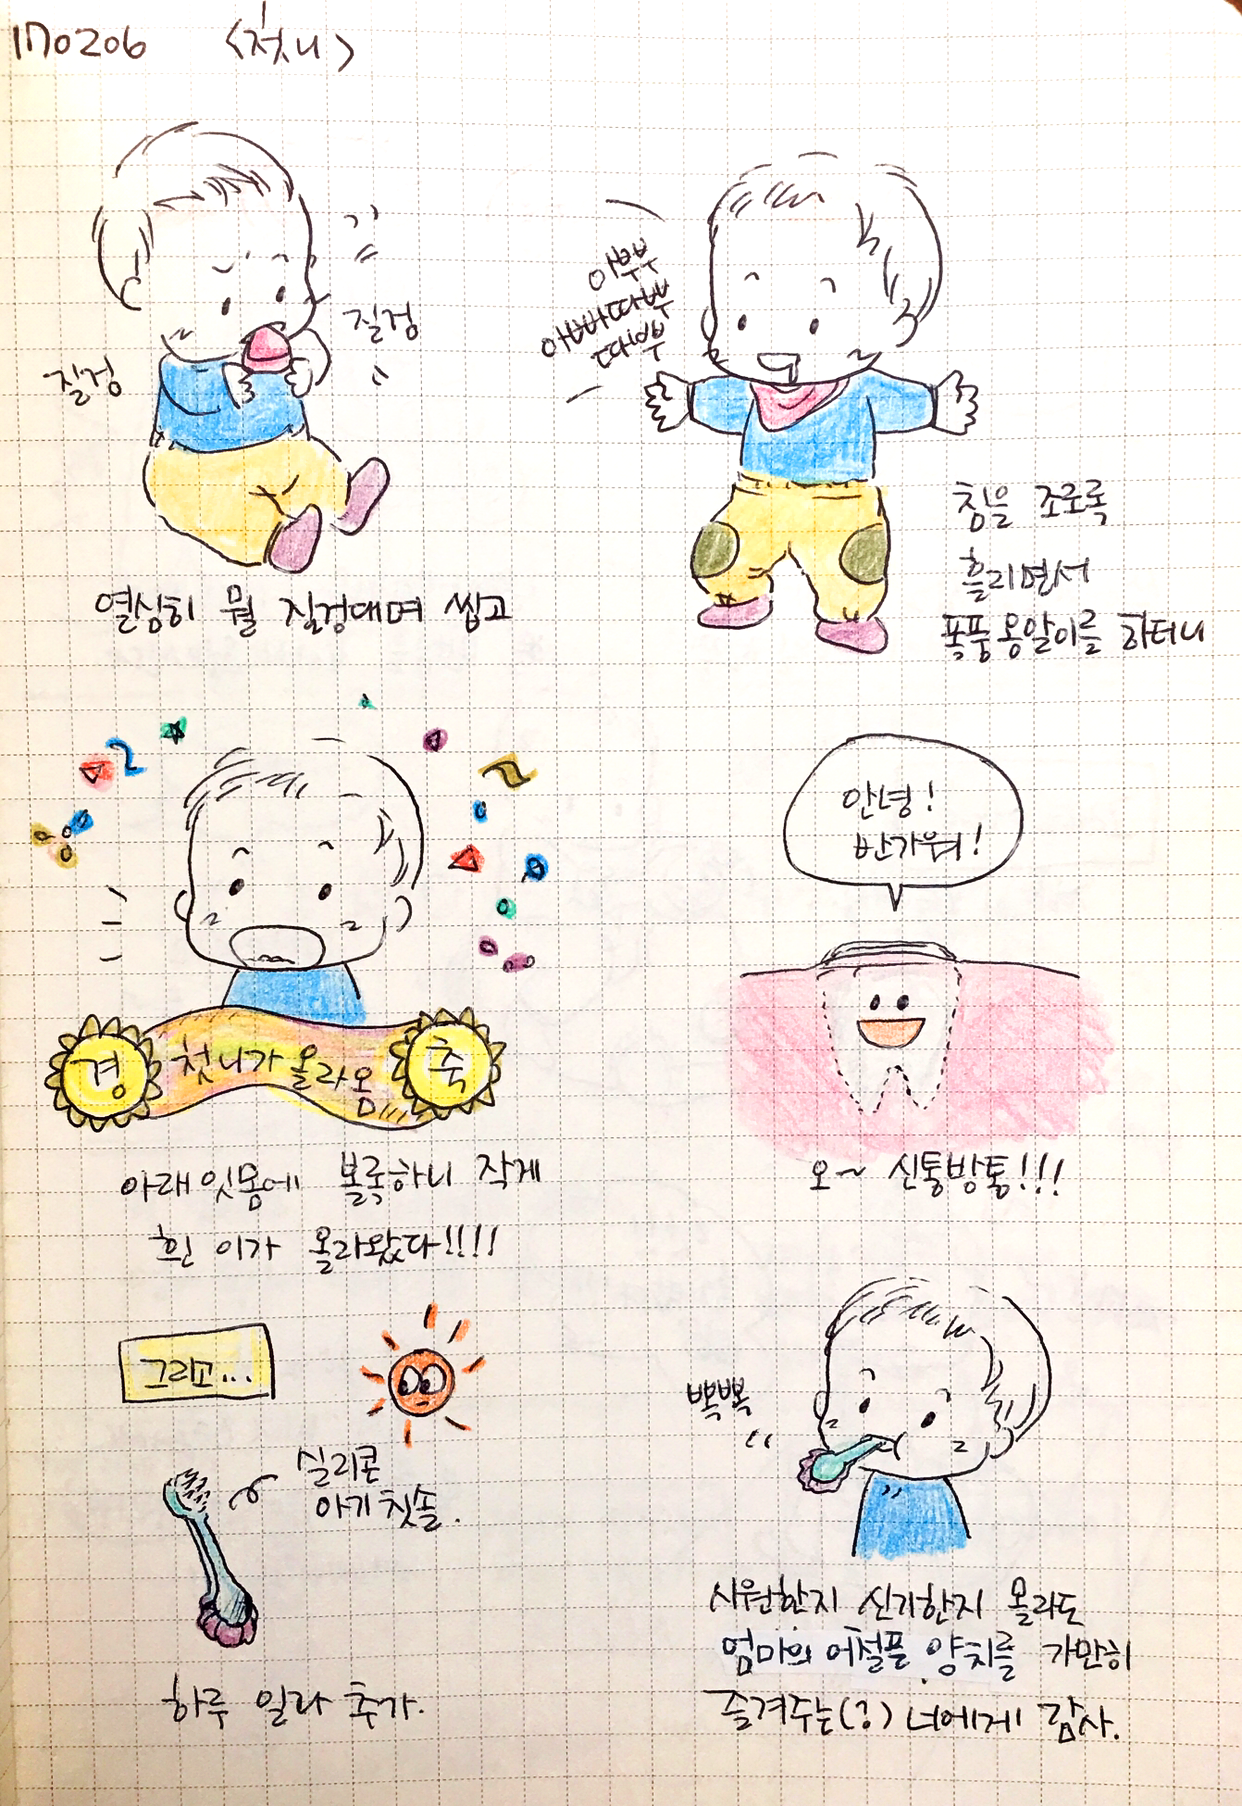 170206 <첫니>
질겅
질겅
열심히 뭘 질겅대며 씹고
아부부
아빠따뿌
따뿌
침을 조로록
흘리면서
폭풍옹알이를 하더니
경 첫니가 올라옴 축
아래 잇몸에 볼록하니 작게
흰 이가 올라왔다!!!!
안녕!
반가워!
오~ 신통방통!!!
그리고...
실리콘
아기 칫솔.
하루 일과 추가.
뽁뽁
시원한지 신기한지 몰라도
엄마의 어설픈 양치를 가만히
즐겨주는(?) 너에게 감사.